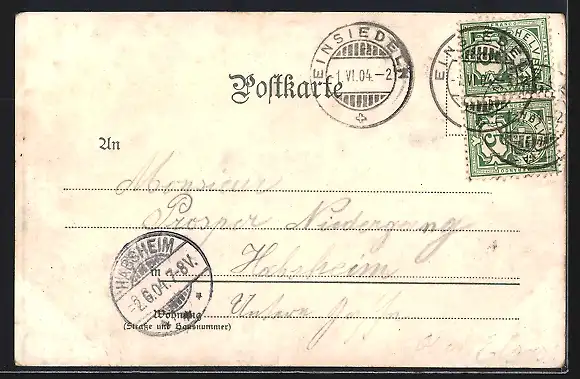 EINSIEDELN
1.VI.04.-2
EINSIEDELN
FRANCO HELVETIA
5
Postkarte
An
Monsieur
Prosper Niedergang
HABSHEIM
2.6.04.7-8V.
in Habsheim
Wohnung
(Straße und Hausnummer)
Untere